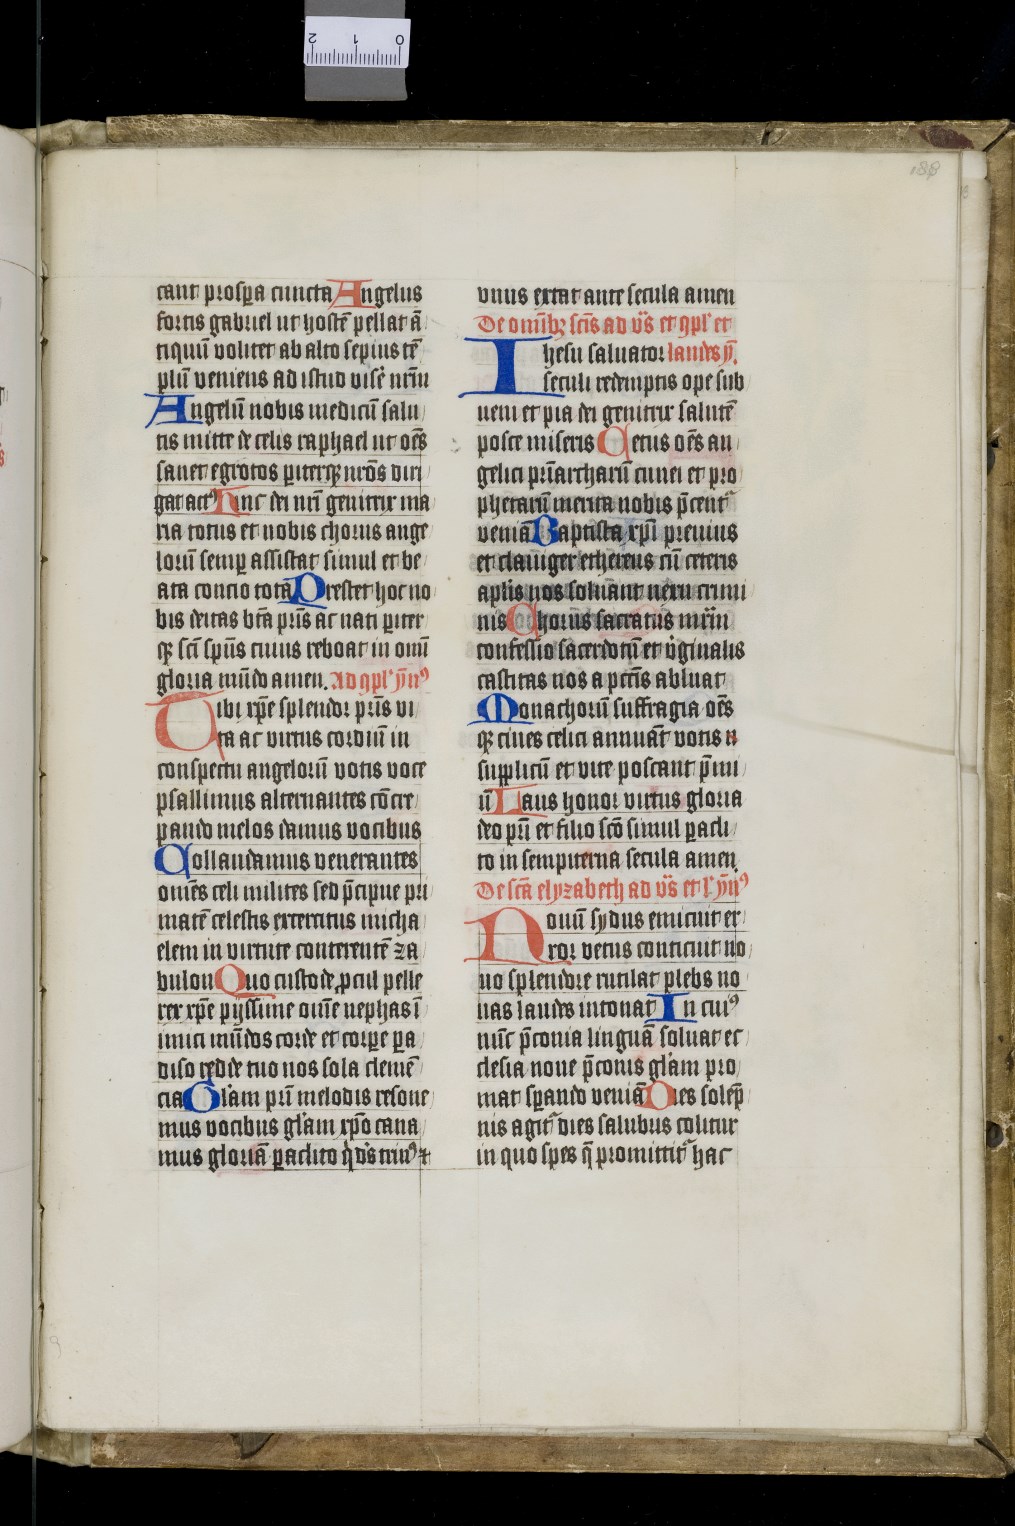 188
cant prosꝑa cuncta Angelus
fortis gabriel ut hostē pellat ā
tiquū volitet ab alto sepius tē
plū veniens ad istud visē nr̄m
Angelū nobis medicū salu
tis mitte de celis raphael ut oēs
sanet egrotos ꝑiterqꝫ nr̄os diri
gat actꝰ Hinc dei nr̄i genitrix ma
ria totus et nobis chorus ange
lorū semꝑ assistat simul et be
ata concio tota Prestet hoc no
bis deitas bt̄a pr̄is ac nati ꝑiter
qꝫ sc̄i sp̄us cuius reboat in om̄i
gloria mūdo amen. Ad ꝯpl' ȳnꝰ
Tibi xp̄e splendor pr̄is vi
ta ac virtus cordiū in
conspectu angelorū votis voce
psallimus alternantes cōcre
pando melos damus vocibus
Collaudamus venerantes
omēs celi milites sed p̄cipue pri
matē celestis exercitus micha
elem in virtute conterentē za
bulon Quo custode ꝓcul pelle
rex xp̄e pijssime om̄e nephas ī
imici mūdos corde et corpe ꝑa
diso redde tuo nos sola clemē
cia Gl'am pr̄i melodis resone
mus vocibus gl'am xp̄o cana
mus gloriā ꝑaclito q̄ ds̄ trinꝰ ⁊
vnus extat ante secula amen
De om̄ibꝫ sc̄is ad vs̄ et ꝯpl' et
Ihesu saluator laudes ȳ.
seculi redemptis ope sub
ueni et pia dei genitrix salutē
posce miseris Cetus oēs an
gelici pr̄iarcharū cunei et pro
phetarū merita nobis p̄cent̄
veniā Baptista xp̄i preuius
et clauiger ethereus cū ceteris
apl̄is nos soluant nexu crimi
nis Chorus sacratus mr̄im
confessio sacerdotū et v̓ginalis
castitas nos a pctīs abluat
Monachorū suffragia oēs
qꝫ ciues celici annuāt votis
supplicū et vite poscant p̄mi
ū Laus honor virtus gloria
deo pr̄i et filio sc̄o simul ꝑacli
to in sempiterna secula amen.
De sc̄a elyzabeth ad vs̄ et l' ȳnꝰ
Nouū sydus emicuit er
ror vetus conticuit no
uo splendore rutilat plebs no
uas laudes intonat In cuiꝰ
nūc p̄conia linguā soluat ec
clesia noue p̄conis gl'am pro
mat sperando veniā Dies solēp
nis agit̄ dies salubris colitur
in quo spes q̄ promittit̄ hac